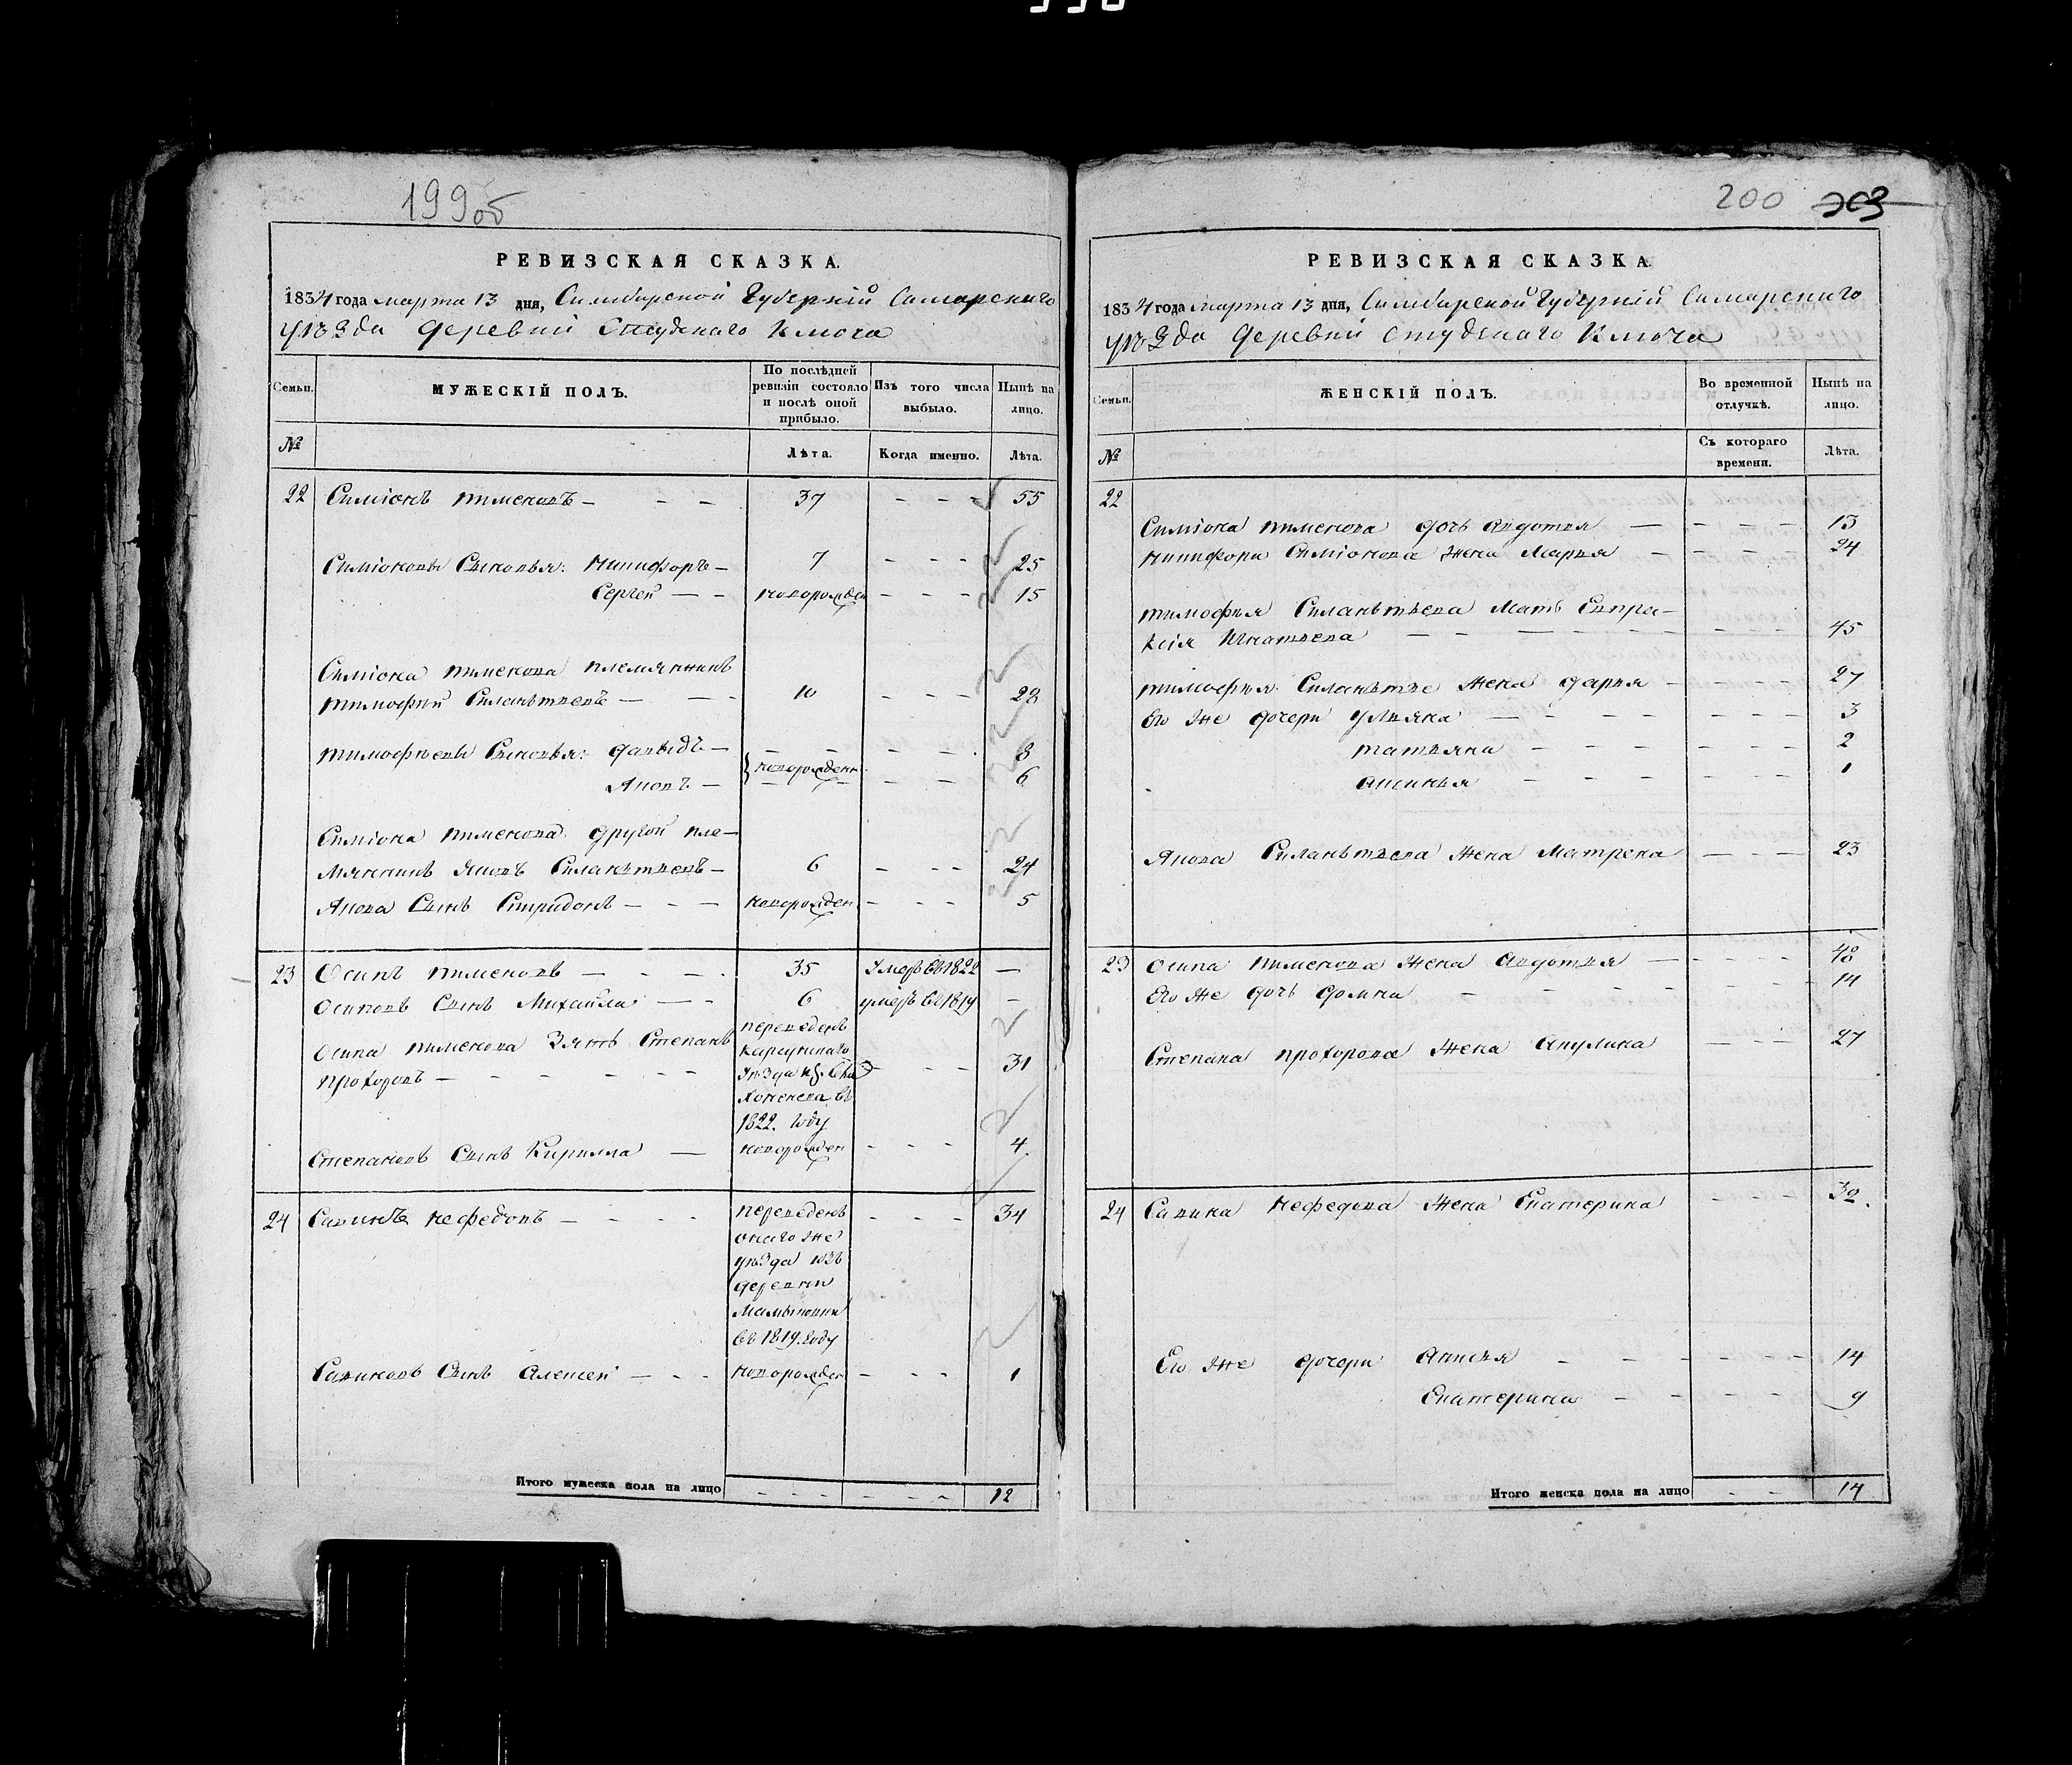 199об
РЕВИЗСКАЯ СКАЗКА.
1834 года марта 13 дня, Симбирской Губерніи Самарскаго
уѣзда деревни Студенаго Ключа
Семьи.
МУЖЕСКІЙ ПОЛЪ.
По послѣдней ревизіи состояло и послѣ оной прибыло.
Изъ того числа выбыло.
Нынѣ на лицо.
№
Лѣта.
Когда именно.
Лѣта.
22 Симіонъ Пименовъ — — — 37 — — — 55
Симіоновы Сыновья: Никифоръ — 7 — — — 25
Сергей — — новорожден — — — 15
Симіона Пименова племянникъ
Тимофей Силантьевъ — — - 10 — — — 28
Тимофѣевы Сыновья: Давыдъ — — — — — 8
} новорожденн
Яковъ — — — — — 6
Симіона Пименова другой пле—
мянникъ Яковъ Силантьевъ — 6 — — — 24
Якова Сынъ Спиридонъ — — — новорожден — — — 5
23 Осипъ Пименовъ — — — 35 Умеръ въ 1822 —
Осиповъ Сынъ Михайла — — 6 умеръ въ 1819 —
Осипа Пименова Зять Степанъ
Прохоровъ — — — — — —
переведенъ
Карсунскаго
Уѣзда
въ
1822. году
— — — 31
Степановъ Сынъ Кирилла — новорожден — — — 4
24 Савинъ Нефедовъ — — — — переведенъ — — — 34
онаго же
уѣзда изъ
деревни
въ 1819. году
Савиновъ Сынъ Алексей — — — новорожден — — — 1
Итого мужеска пола на лицо — — — — — — 12
200
РЕВИЗСКАЯ СКАЗКА
1834 года марта 13 дня, Симбирской Губерніи Самарскаго
уѣзда деревни Студенаго Ключа
Семьи.
ЖЕНСКІЙ ПОЛЪ.
Во временной отлучкѣ.
Нынѣ на лицо.
№
Съ котораго времени.
Лѣта.
22
Симіона Пименова дочь Авдотья — — — — — 13
Никифора Симіонова жена Марья — — — — — 24
Тимофея Силантьева Мать Евпра—
ксія Игнатьева — — — — — — 45
Тимофея Силантье жена Дарья — — — — — 27
Его же дочери Ульяна — — — — — — 3
Татьяна — — — — — — 2
Аксинья — — — — — — 1
Якова Силантьева жена Матрена — — — 23
23 Осипа Пименова жена Авдотья — — — — — 48
Его же дочь Домна — — — — — — 14
Степана Прохорова жена Акулина — — — 27
24 Савина Нефедова жена Екатерина — — — 32.
Его же дочери Анисья — — — — — — 14
Екатерина — — — — — 9
Итого женска пола на лицо — — 14